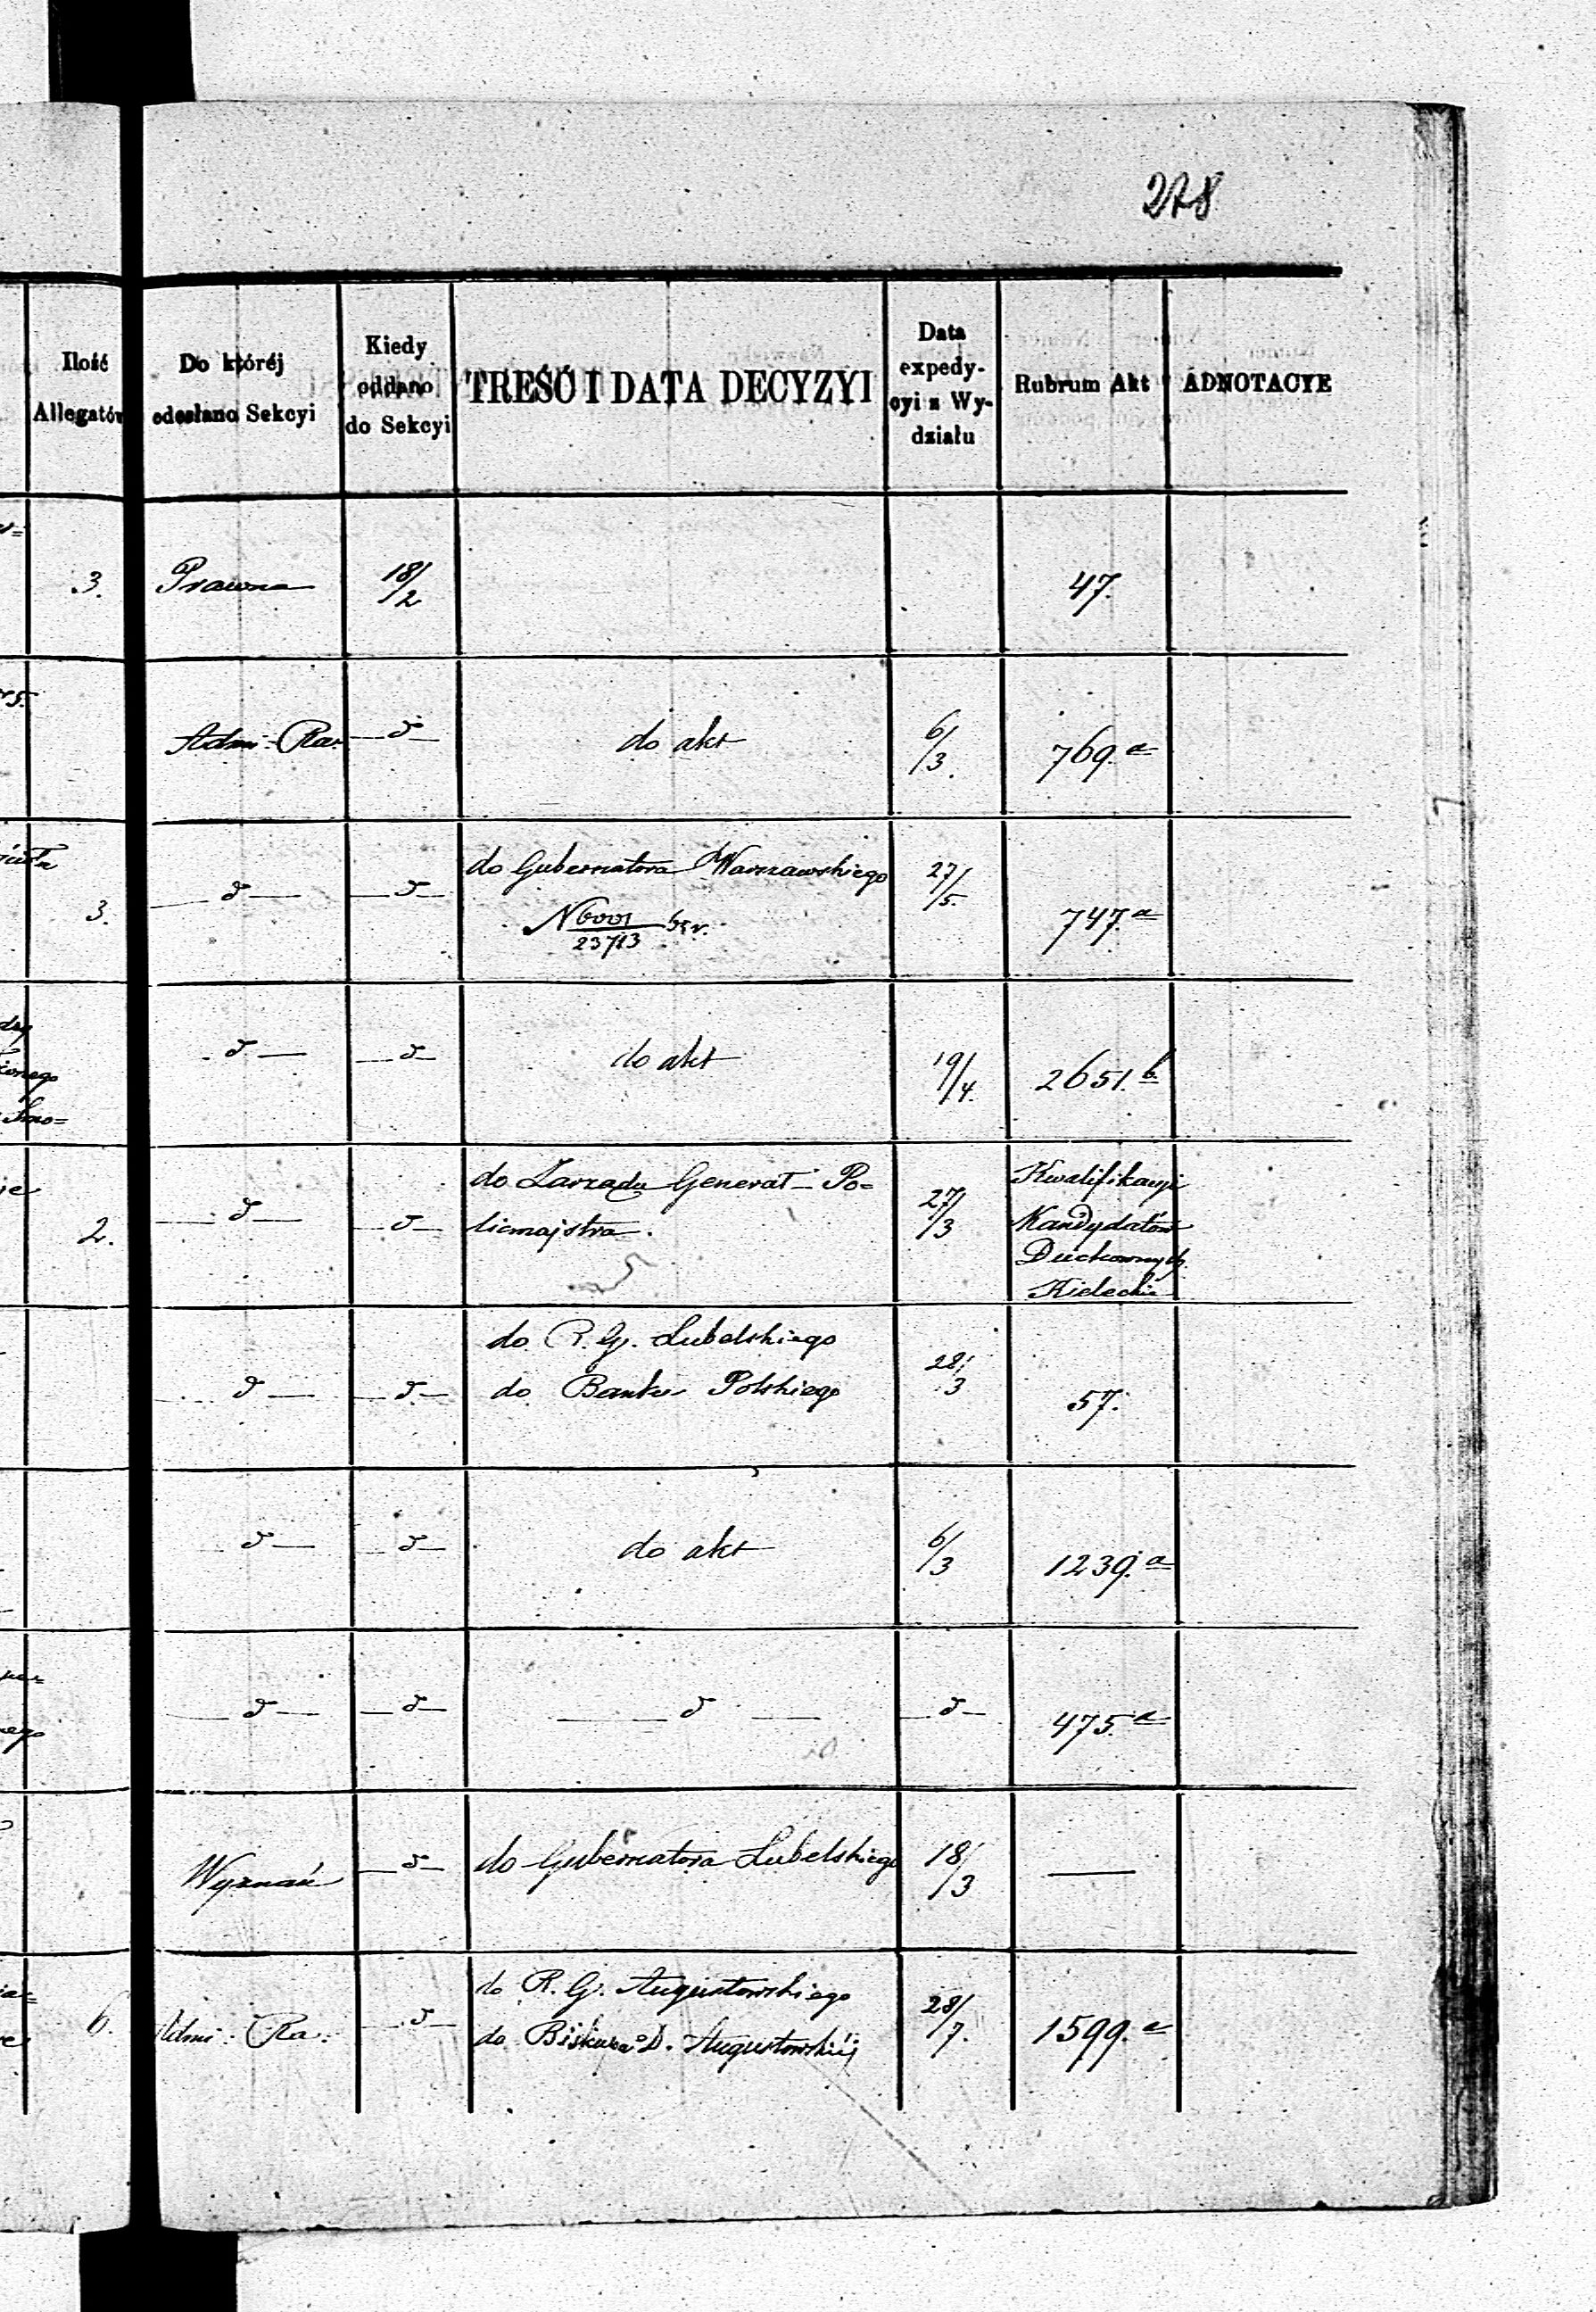 278
Ilość
Allegatów
Do któréj
odesłano Sekcyi
Kiedy
oddano
do Sekcyi
TREŚĆ I DATA DECYZYI
Data
expedy-
cyi z Wy-
działu
Rubrum Akt
ADNOTACYE
3. Prawna 18/2 47.
Admi: Ra: — d — do akt 6/3. 769.a
3. — d — — d — do Gubernatora Warszawskiego 27/5. 747.a
N 6001/23713
— d — — d — do akt 19/4. 2651.b
2. — d — — d — do Zarządu Generał-Po= 27/3 Kwalifikacyi
licmajstra. Kandydatów
Duchownych
Kielecki
— d — — d — do R. G. Lubelskiego 28/3 57.
do Banku Polskiego
— d — — d — do akt 6/3 1239.a
— d — — d — — d — — d — 475.a
Wyznań — d — do Gubernatora Lubelskiego 18/3 —
6. Admi: Ra: — d — do R. G. Augustowskiego 28/7. 1599.a
do Biskupa D. Augustowskiéj